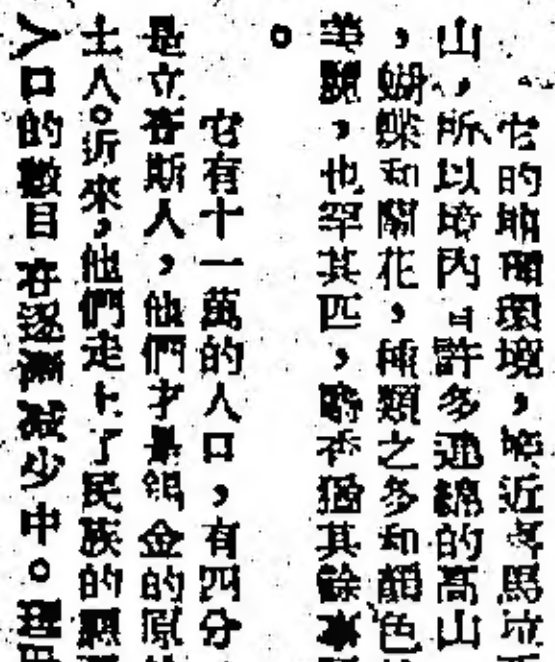 它的地理環境，接近喜馬拉
山，所以境內有許多連綿的高山
，蝴蝶和蘭花，種類之多和顏色
華麗，也罕其匹，麝香猶其餘事
。
它有十一萬的人口，有四分
是立答斯人，他們才是錫金的原
土人。近來，他們走上了民族的
人口的數目在逐漸減少中。理